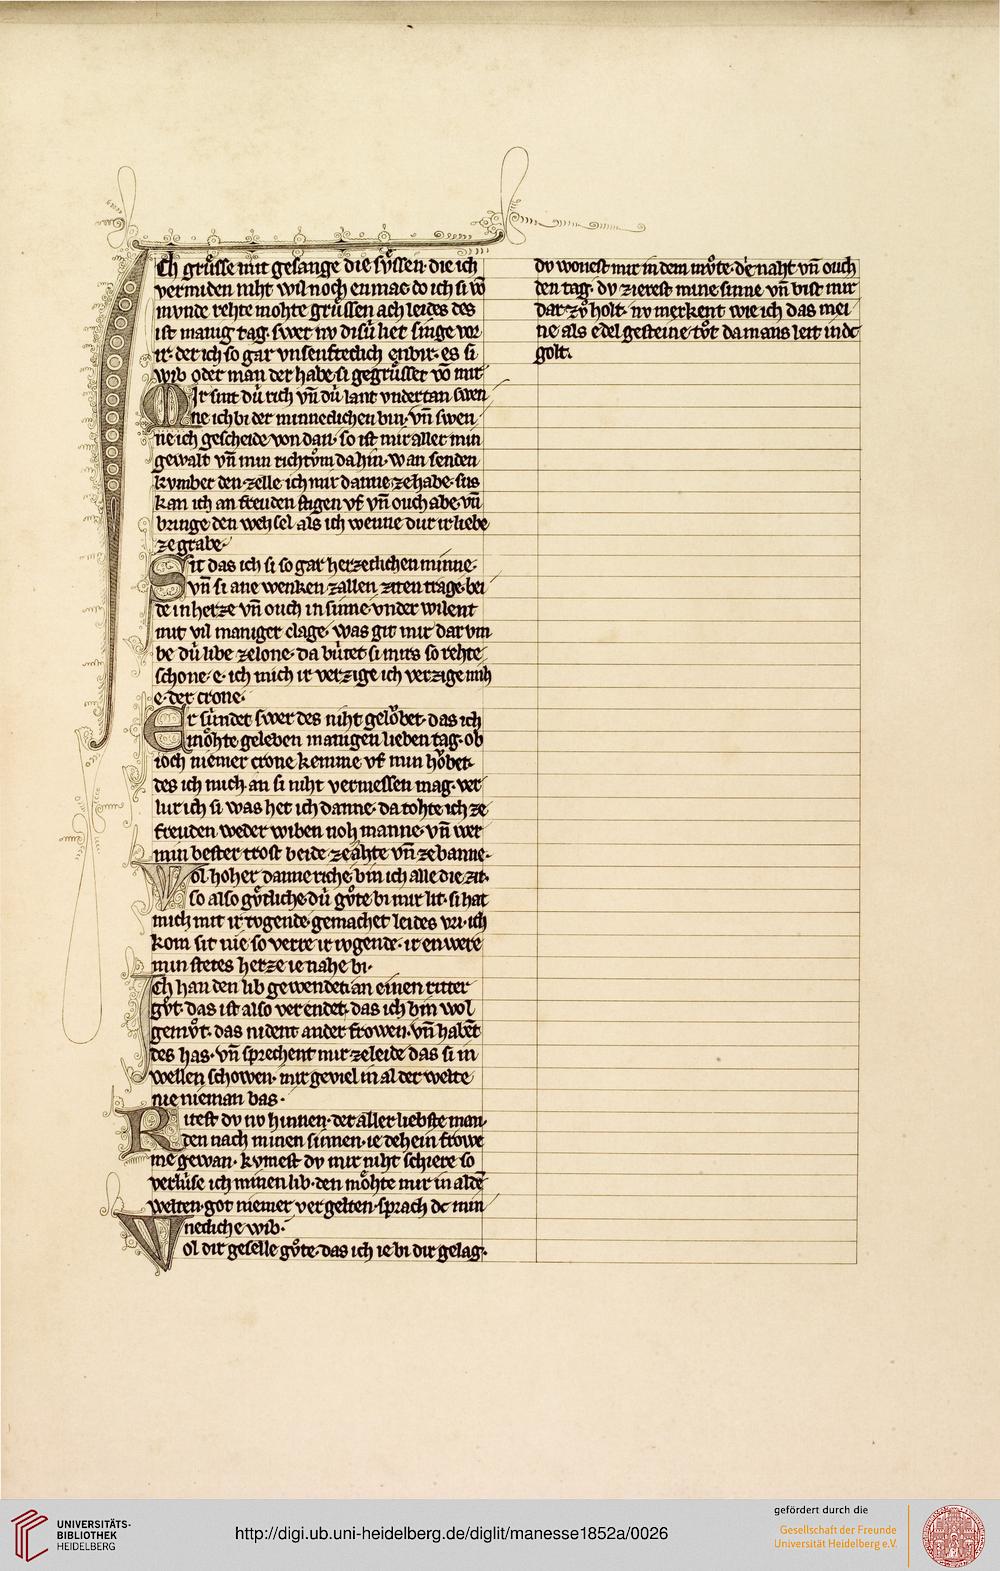 Ich gruͦsse mit gesange die suͤssen· die ich
vermiden niht wil noch enmac· do ich si vō
mvnde rehte mohte gruͤssen ach leides des
ist manig tag· swer nv disú liet singe vor
ir· der ich so gar vnsenfteclich enbir· es si
wib oder man der habe si gegruͤsset vō mir·
Mir sint dú rich vn̄ dú lant vndertan swen
ne ich bi der minneclichen bin· vn̄ swen
ne ich gescheide von dan· so ist mir aller min
gewalt vn̄ min richtvͦm da hin· wan senden
kvmber den zelle ich mir danne ze habe· sus
kan ich an freuden stigen vf vn̄ ouch abe· vn̄
bringe den wehsel als ich wenne dur ir liebe
ze grabe·
Sit das ich si so gar herzeclichen minne·
vn̄ si ane wenken zallen ziten trage· bei
de in herze vn̄ ouch in sinne· vnder wilent
mit vil maniger clage· was git mir dar vm
be dú libe ze lone· da bútet si mirs so rehte
schone· e· ich mich ir verzige ich verzige mih
e· der crone·
Er súndet swer des niht geloͮbet· das ich
moͤhte geleben manigen lieben tag· ob
ioch niemer crone keme vf min hoͮbet·
des ich mich an si niht vermessen mag· ver
lur ich si was het ich danne· da tohte ich ze
freuden weder wiben noh manne· vn̄ wer
min bester trost beide ze ahte vn̄ ze banne·
Wol hoher danne riche bin ich alle die zit·
so also guͤtliche· dú guͦte bi mir lit· si hat
mich mit ir tvgende· gemachet leides vri· ich
kom sit nie so verre ir ivgende· ir en were
min stetes herze ie nahe bi·
Ich han den lib gewendet· an einen ritter
gvͦt· das ist also ver endet· das ich bin wol
gemvͦt· das nident ander frowen· vn̄ habēt
des has· vn̄ sprechent mir ze leide das si in
wellen schowen· mir geviel in al der welte
nie nieman bas·
Ritest dv nv hinnen· der aller liebste man·
den nach minen sinnen· ie dehein frowe
me gewan· kvmest dv mir niht schiere so
verlúse ich minen lib· den moͤhte mir in al dē
welten· got niemer vergelten· sprach dc min
necliche wib·
Wol dir geselle gvͦte· das ich ie bi dir gelag·
dv wonest mir in dem mvͦte· die naht vn̄ ouch
den tag· dv zierest mine sinne vn̄ bist mir
dar zvͦ holt· nv merkent wie ich das mei
ne als edel gesteine tvͦt da mans leit in dc
golt·
UNIVERSITÄTS-
BIBLIOTHEK
HEIDELBERG
http://digi.ub.uni-heidelberg.de/diglit/manesse1852a/0026
gefördert durch die
Gesellschaft der Freunde
Universität Heidelberg e.V.